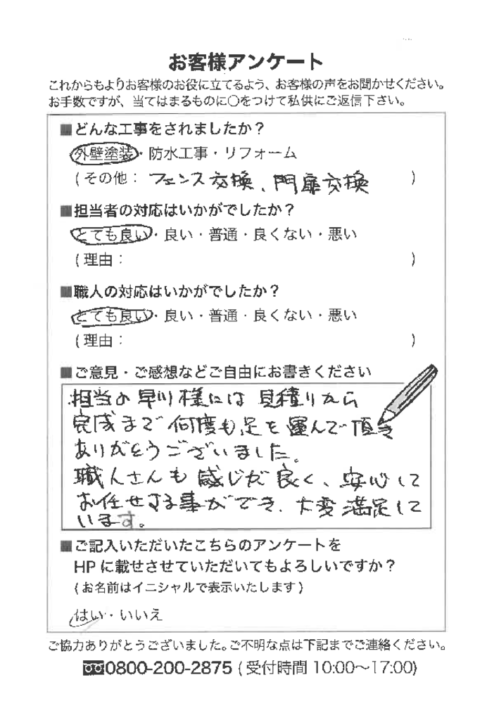 お客様アンケート
これからもよりお客様のお役に立てるよう、お客様の声をお聞かせください。
お手数ですが、当てはまるものに○をつけて私供にご返信下さい。
■どんな工事をされましたか？
外壁塗装・防水工事・リフォーム
(その他：フェンス交換、門扉交換)
■担当者の対応はいかがでしたか？
とても良い・良い・普通・良くない・悪い
(理由：)
■職人の対応はいかがでしたか？
とても良い・良い・普通・良くない・悪い
(理由：)
■ご意見・ご感想などご自由にお書きください
担当の早川様には見積りから
完成まで何度も足を運んで頂き
ありがとうございました。
職人さんも感じが良く、安心して
お任せする事ができ、大変満足して
います。
■ご記入いただいたこちらのアンケートを
HPに載せさせていただいてもよろしいですか？
(お名前はイニシャルで表示いたします)
はい・いいえ
ご協力ありがとうございました。ご不明な点は下記までご連絡ください。
0800-200-2875 (受付時間 10:00〜17:00)